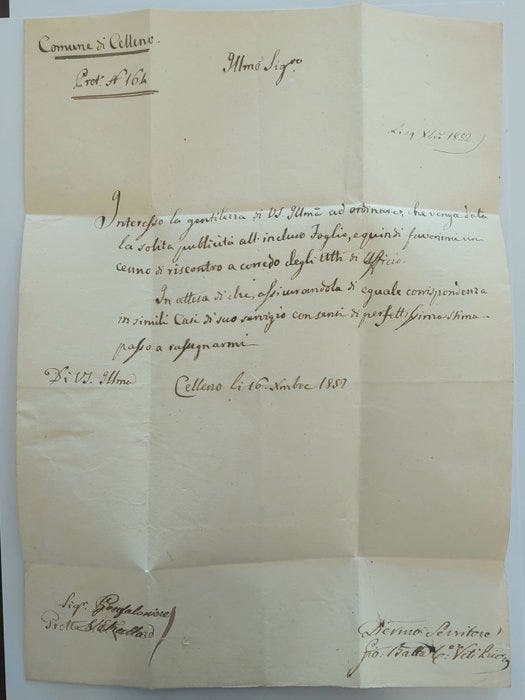 Comune di Celleno.
Prot. N. 164
Illmo Sigre
Li 19 Xbre 1852
Interesso la gentilezza di VS. Illma ad ordinare, che venga data
la solita publicità all'incluso Foglio, e quindi favorirmi un
cenno di riscontro a corredo degli Atti di Ufficio.
In attesa di che, assicurandola di eguale corrispondenza
in simili Casi di suo servizio con sensi di perfettissima stima
passo a rassegnarmi
Di VS. Illma
Celleno li 16 Xmbre 1852
Sigr. Gonfaloniere
Devmo Servitore
Gio. Batta